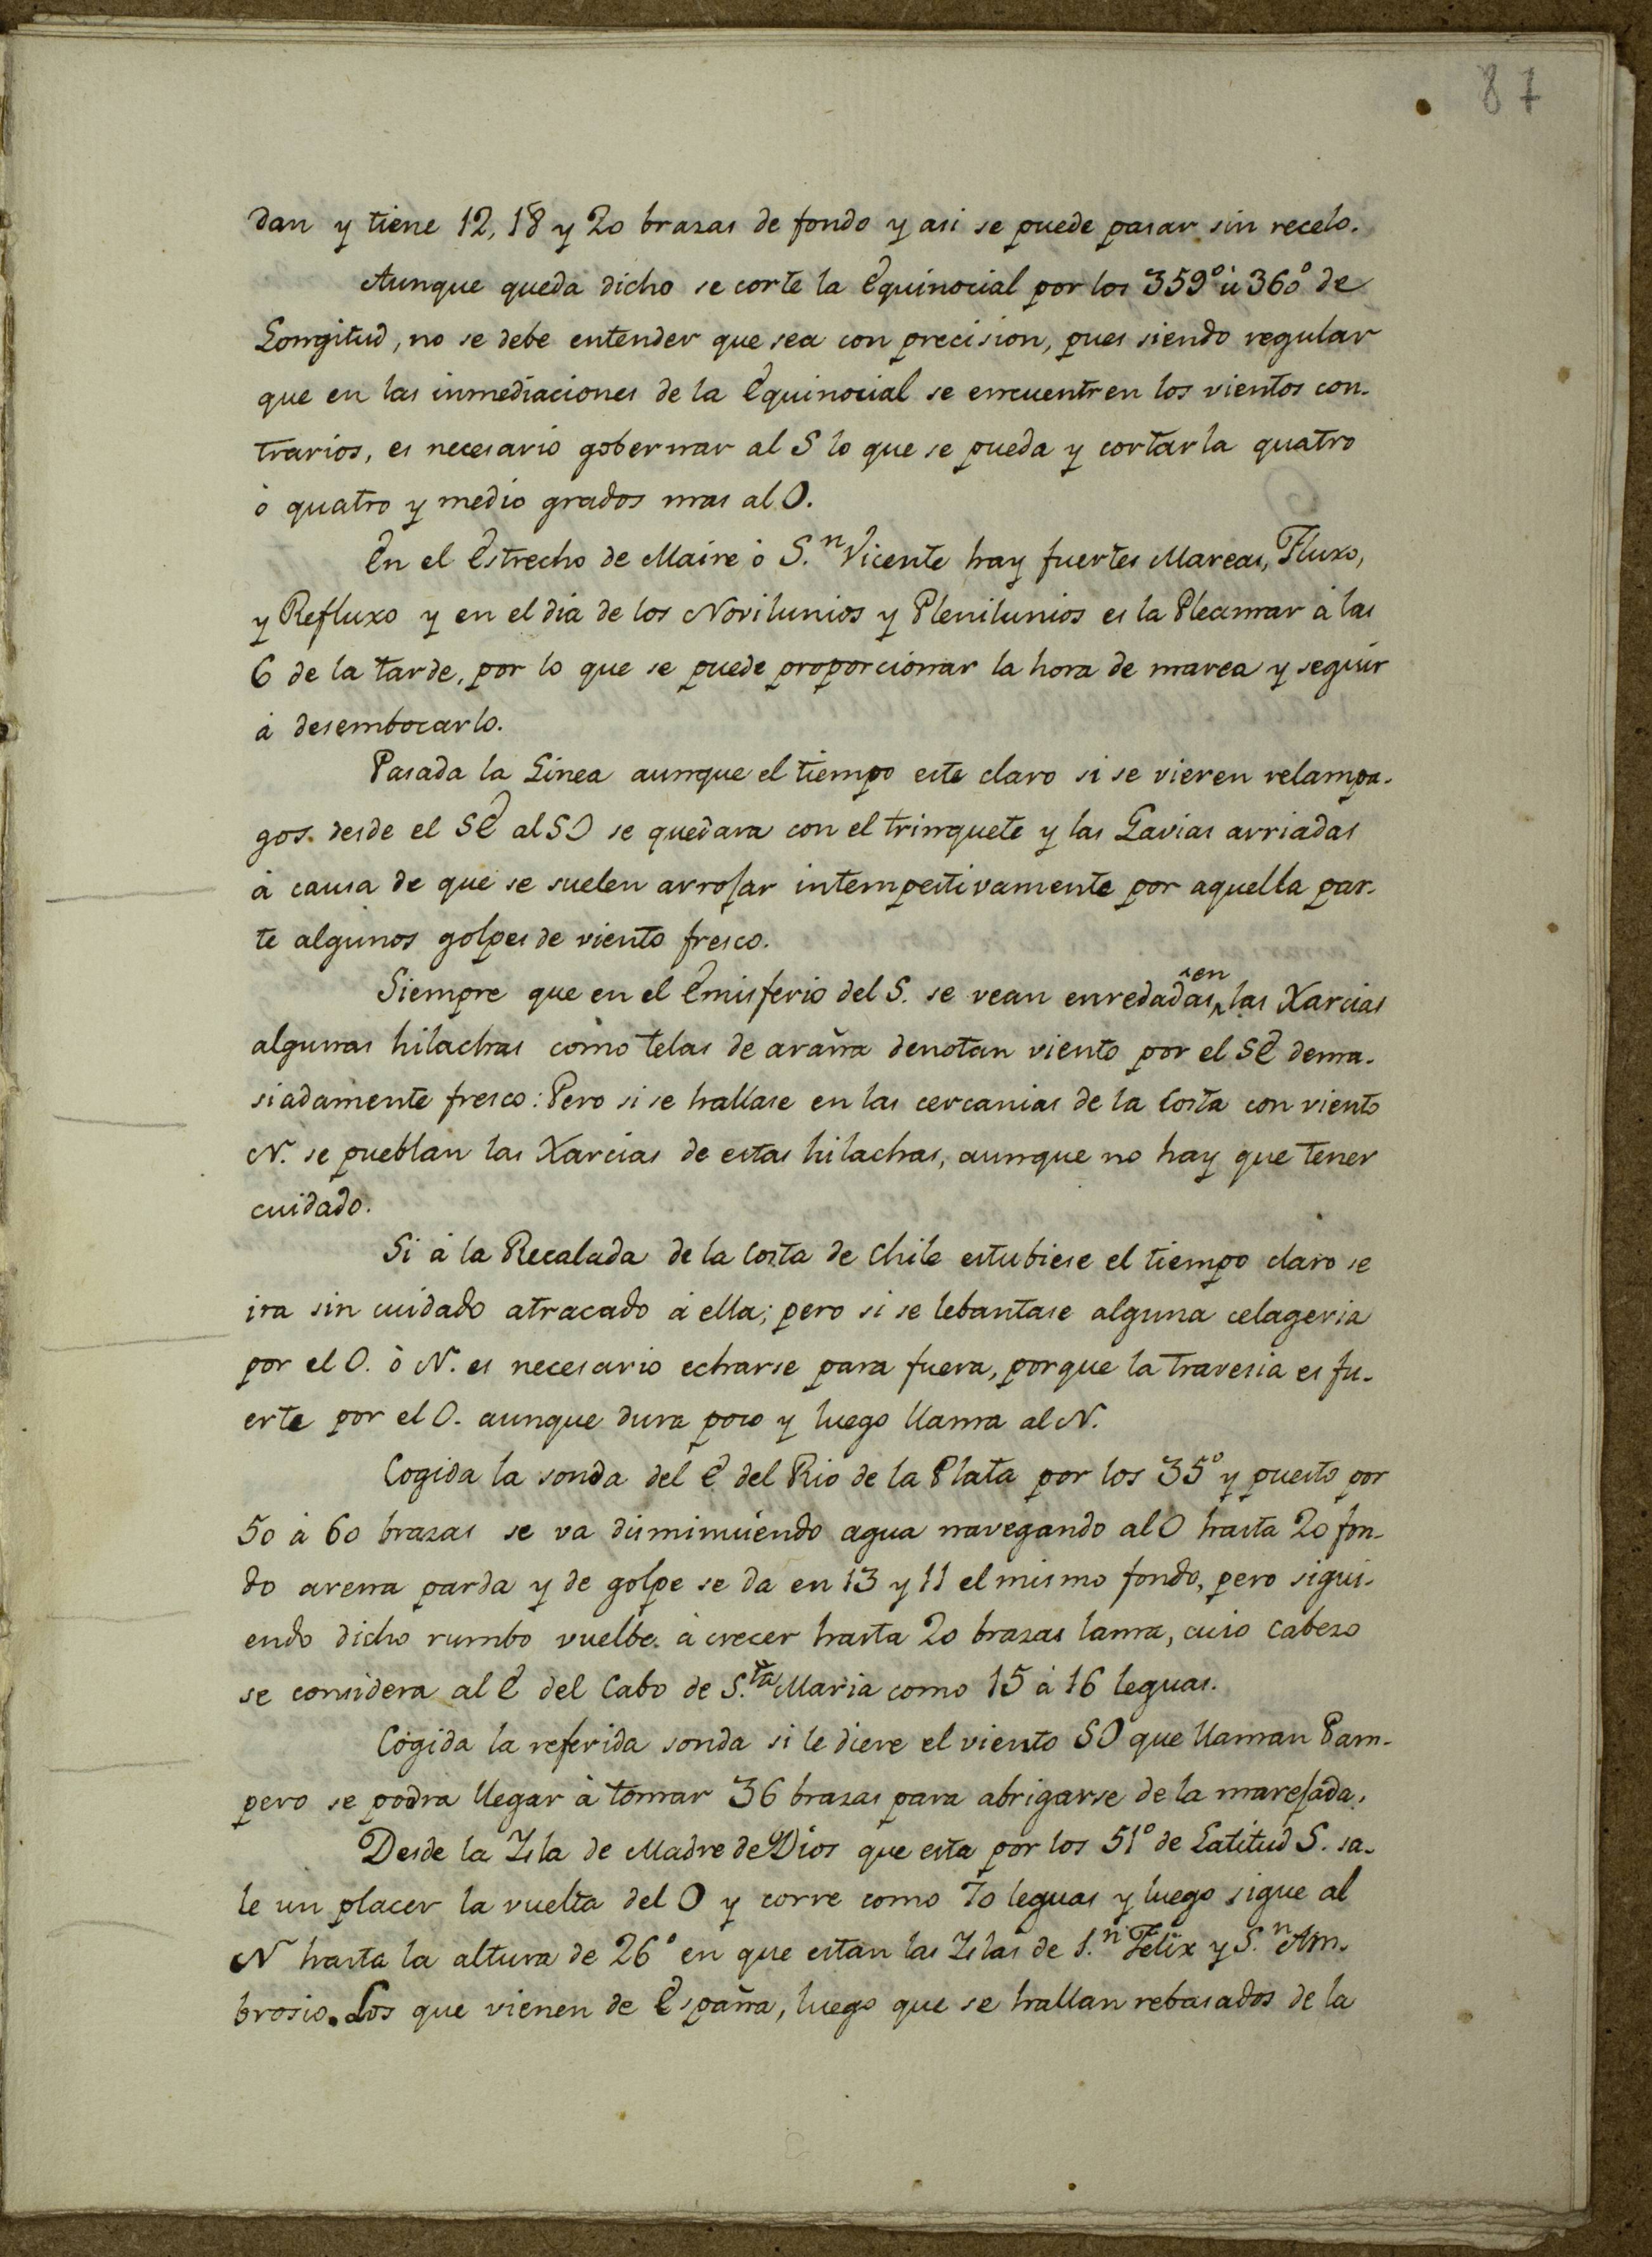 87
dan y tiene 12, 18 y 20 brazas de fondo y asi se puede pasar sin recelo.
Aunque queda dicho se corte la Equinocial por los 359° ù 360° de
Longitud, no se debe entender que sea con precision, pues siendo regular
que en las inmediaciones de la Equinocial se encuentren los vientos con-
trarios, es necesario gobernar al S lo que se pueda y cortarla quatro
ò quatro y medio grados mas al O.
En el Estrecho de Maire ò S.n Vicente hay fuertes Mareas, Fluxo,
y Refluxo y en el dia de los Novilunios y Plenilunios es la Pleamar à las
6 de la tarde, por lo que se puede proporcionar la hora de marea y seguir
à desembocarlo.
Pasada la Linea aunque el tiempo este claro si se vieren relampa-
gos desde el SE al SO se quedara con el trinquete y las Gavias arriadas
à causa de que se suelen arrojar intempestivamente por aquella par-
te algunos golpes de viento fresco.
Siempre que en el Emisferio del S. se vean enredadas en las Xarcias
algunas hilachas como telas de araña denotan viento por el SE dema-
siadamente fresco: Pero si se hallase en las cercanias de la Costa con viento
N. se pueblan las Xarcias de estas hilachas, aunque no hay que tener
cuidado.
Si à la Recalada de la Costa de Chile estubiese el tiempo claro se
ira sin cuidado atracado à ella; pero si se lebantase alguna celageria
por el O. ò N. es necesario echarse para fuera, porque la travesia es fu-
erte por el O. aunque dura poco y luego llama al N.
Cogida la sonda del E del Rio de la Plata por los 35° y puesto por
50 à 60 brazas se va disminuiendo agua navegando al O hasta 20 fon-
do arena parda y de golpe se da en 13 y 11 el mismo fondo, pero sigui-
endo dicho rumbo vuelbe à crecer hasta 20 brazas lama, cuio Cabezo
se considera al E del Cabo de S.ta Maria como 15 à 16 leguas.
Cogida la referida sonda si le diere el viento SO que llaman Pam-
pero se podra llegar à tomar 36 brazas para abrigarse de la marejada.
Desde la Isla de Madre de Dios que esta por los 51° de Latitud S. sa-
le un placer la vuelta del O y corre como 70 leguas y luego sigue al
N hasta la altura de 26° en que estan las Islas de S.n Felix y S.n Am-
brosio. Los que vienen de España, luego que se hallan rebasados de la